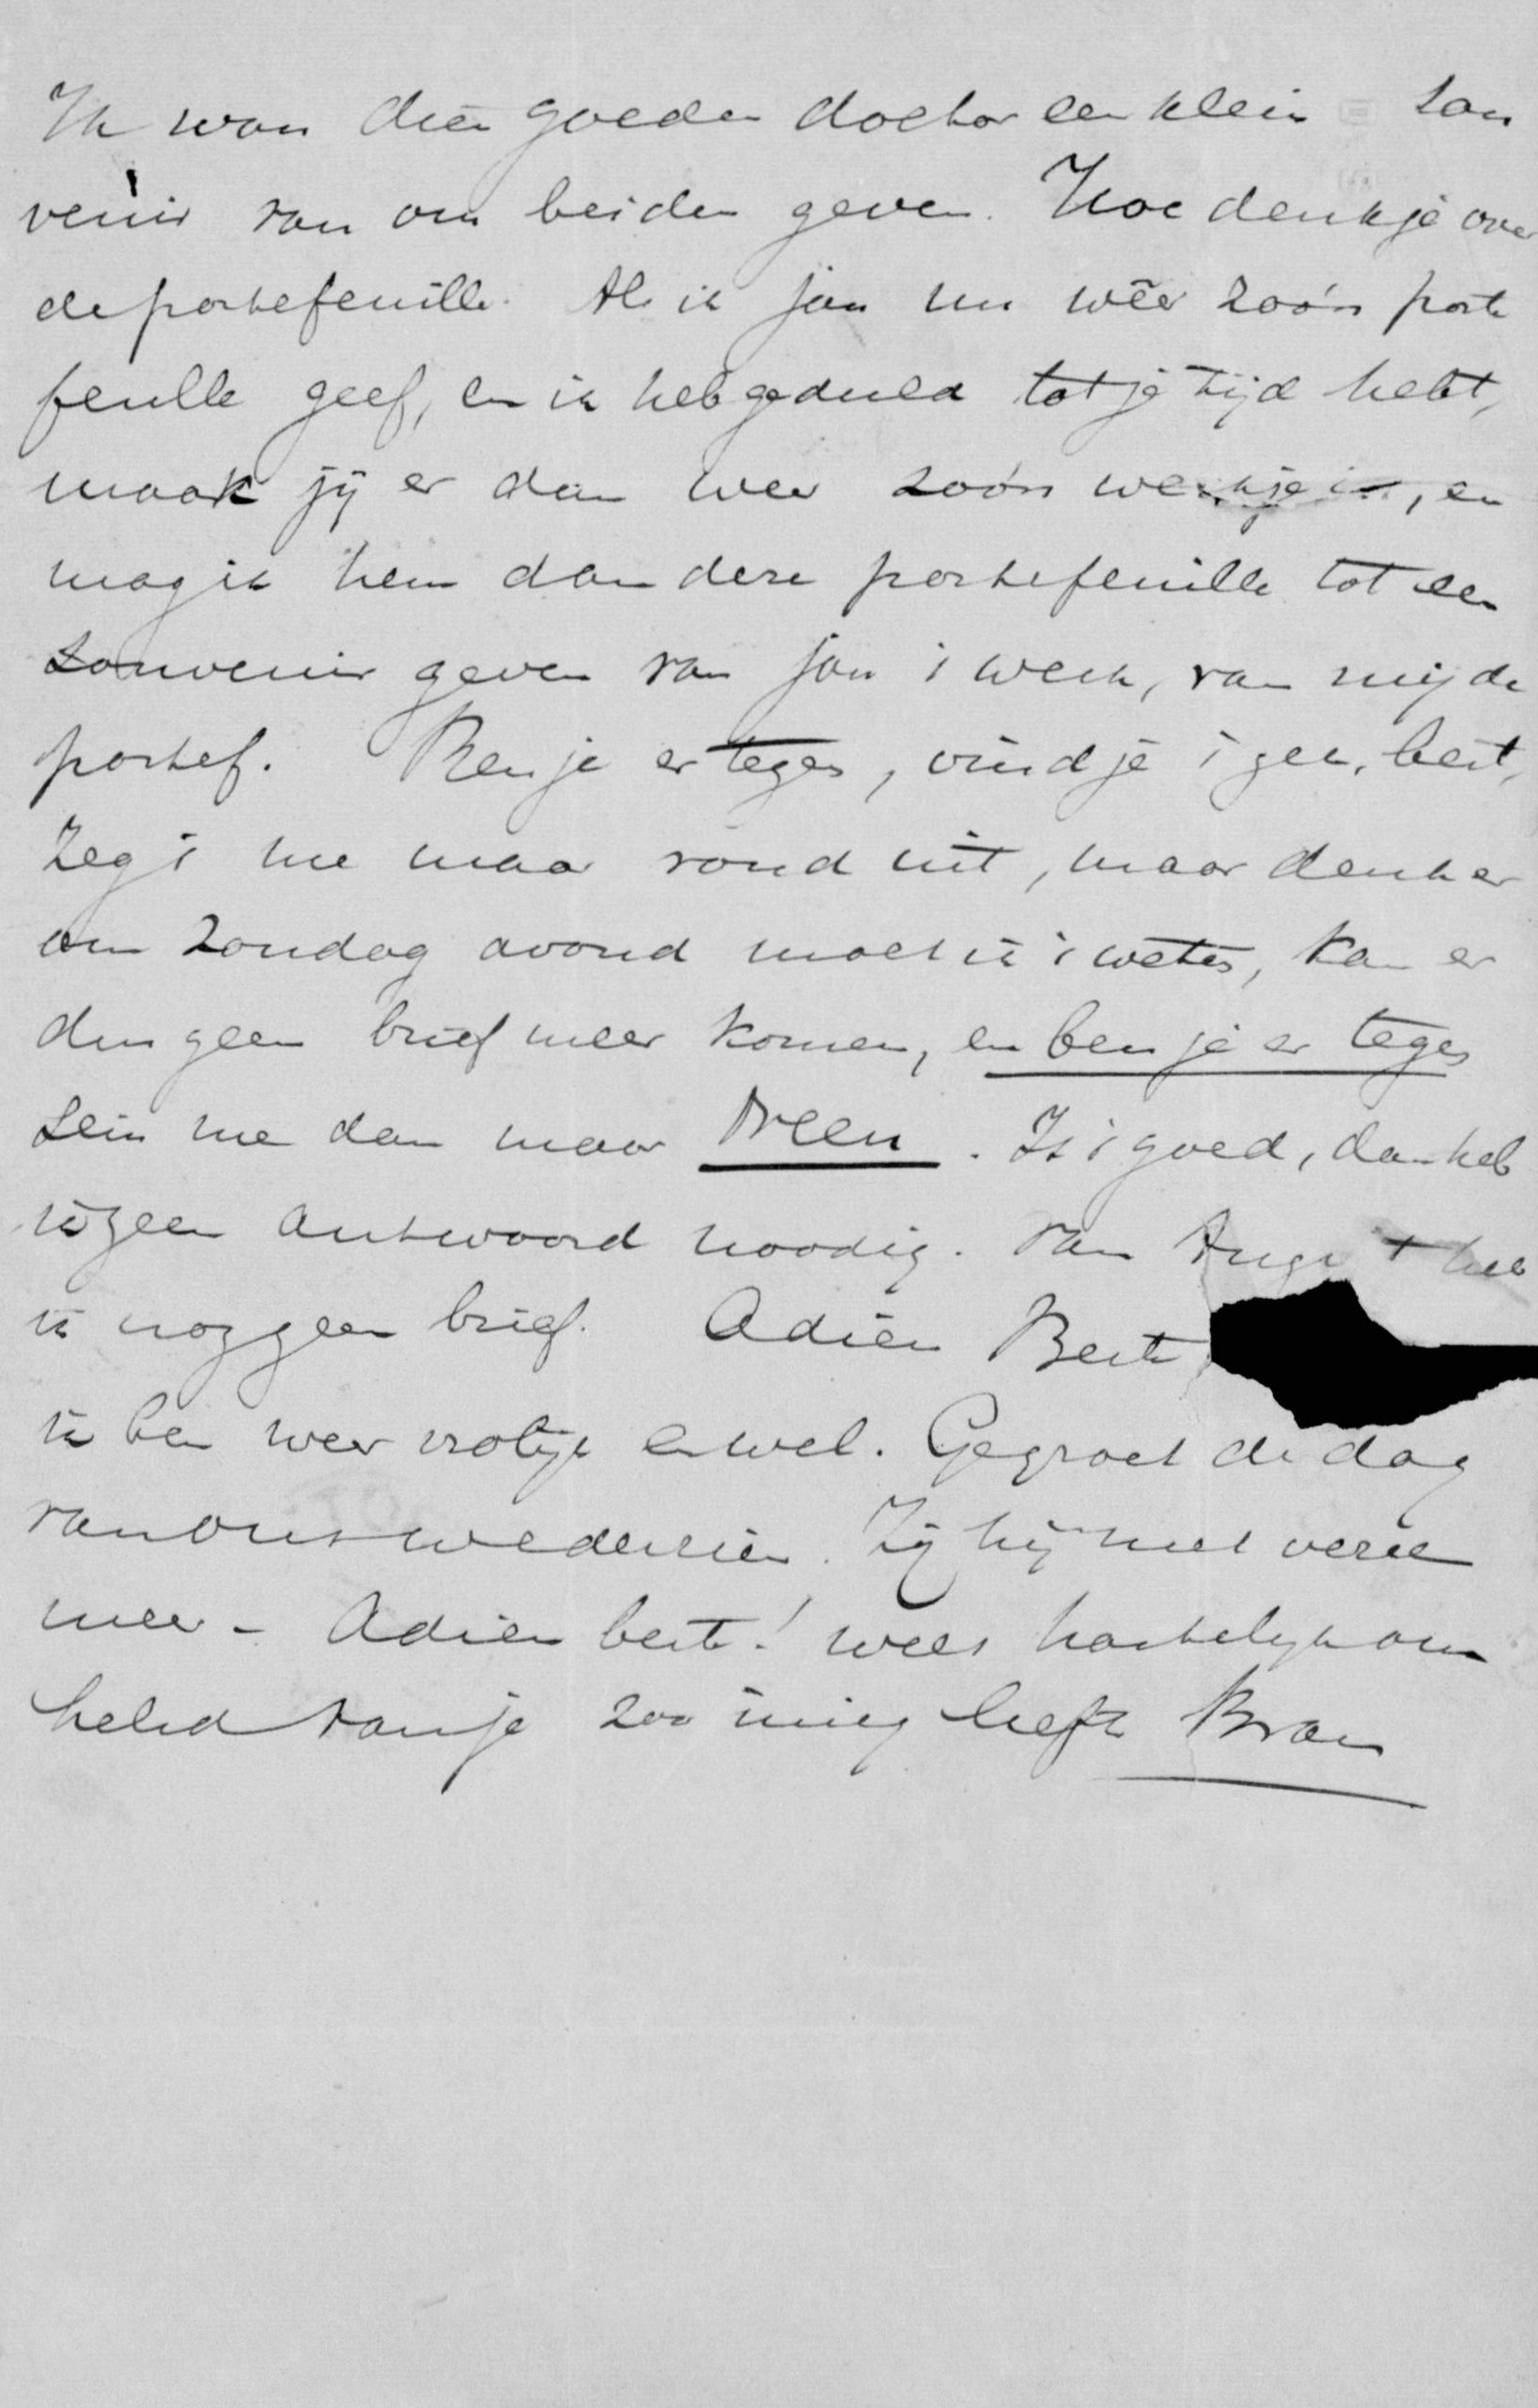 Ik wou dien goeden doctor een klein sou
venir van ons beiden geven. Hoe denk je over
de portefeuille. Als ik jou nu wéér zoó'n porte
feuille geef, en ik heb geduld tot je tijd hebt,
maak jij er dan weer zoó'n werkje in, en
mag ik hem dan deze portefeuille tot een
souvenir geven van jou 't werk, van mij de
portef. Ben je er tegen, vind je 't gek, best,
Zeg 't me maar rond uit, maar denk er
om Zondag avond moet ik 't weten, kan er
dus geen brief meer komen, en ben je er tegen
Sein me dan maar Neen. Is 't goed, dan heb
ik geen antwoord noodig. Van August heb
ik nog geen brief. Adieu Beste
ik ben weer vrolijk en wel. Gegroet de dag
van ons wederzien. Zij hij niet verre
meer - Adieu beste! wees hartelijk om
helsd van je zoo innig liefh Bram